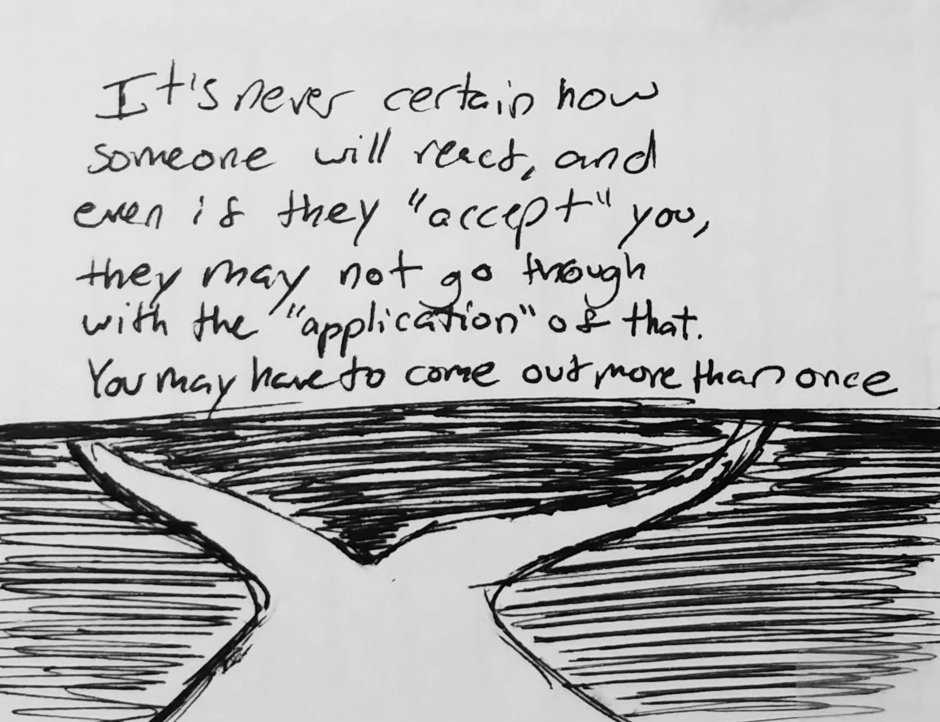 It's never certain how
someone will react, and
even if they "accept" you,
they may not go through
with the "application" of that.
You may have to come out more than once